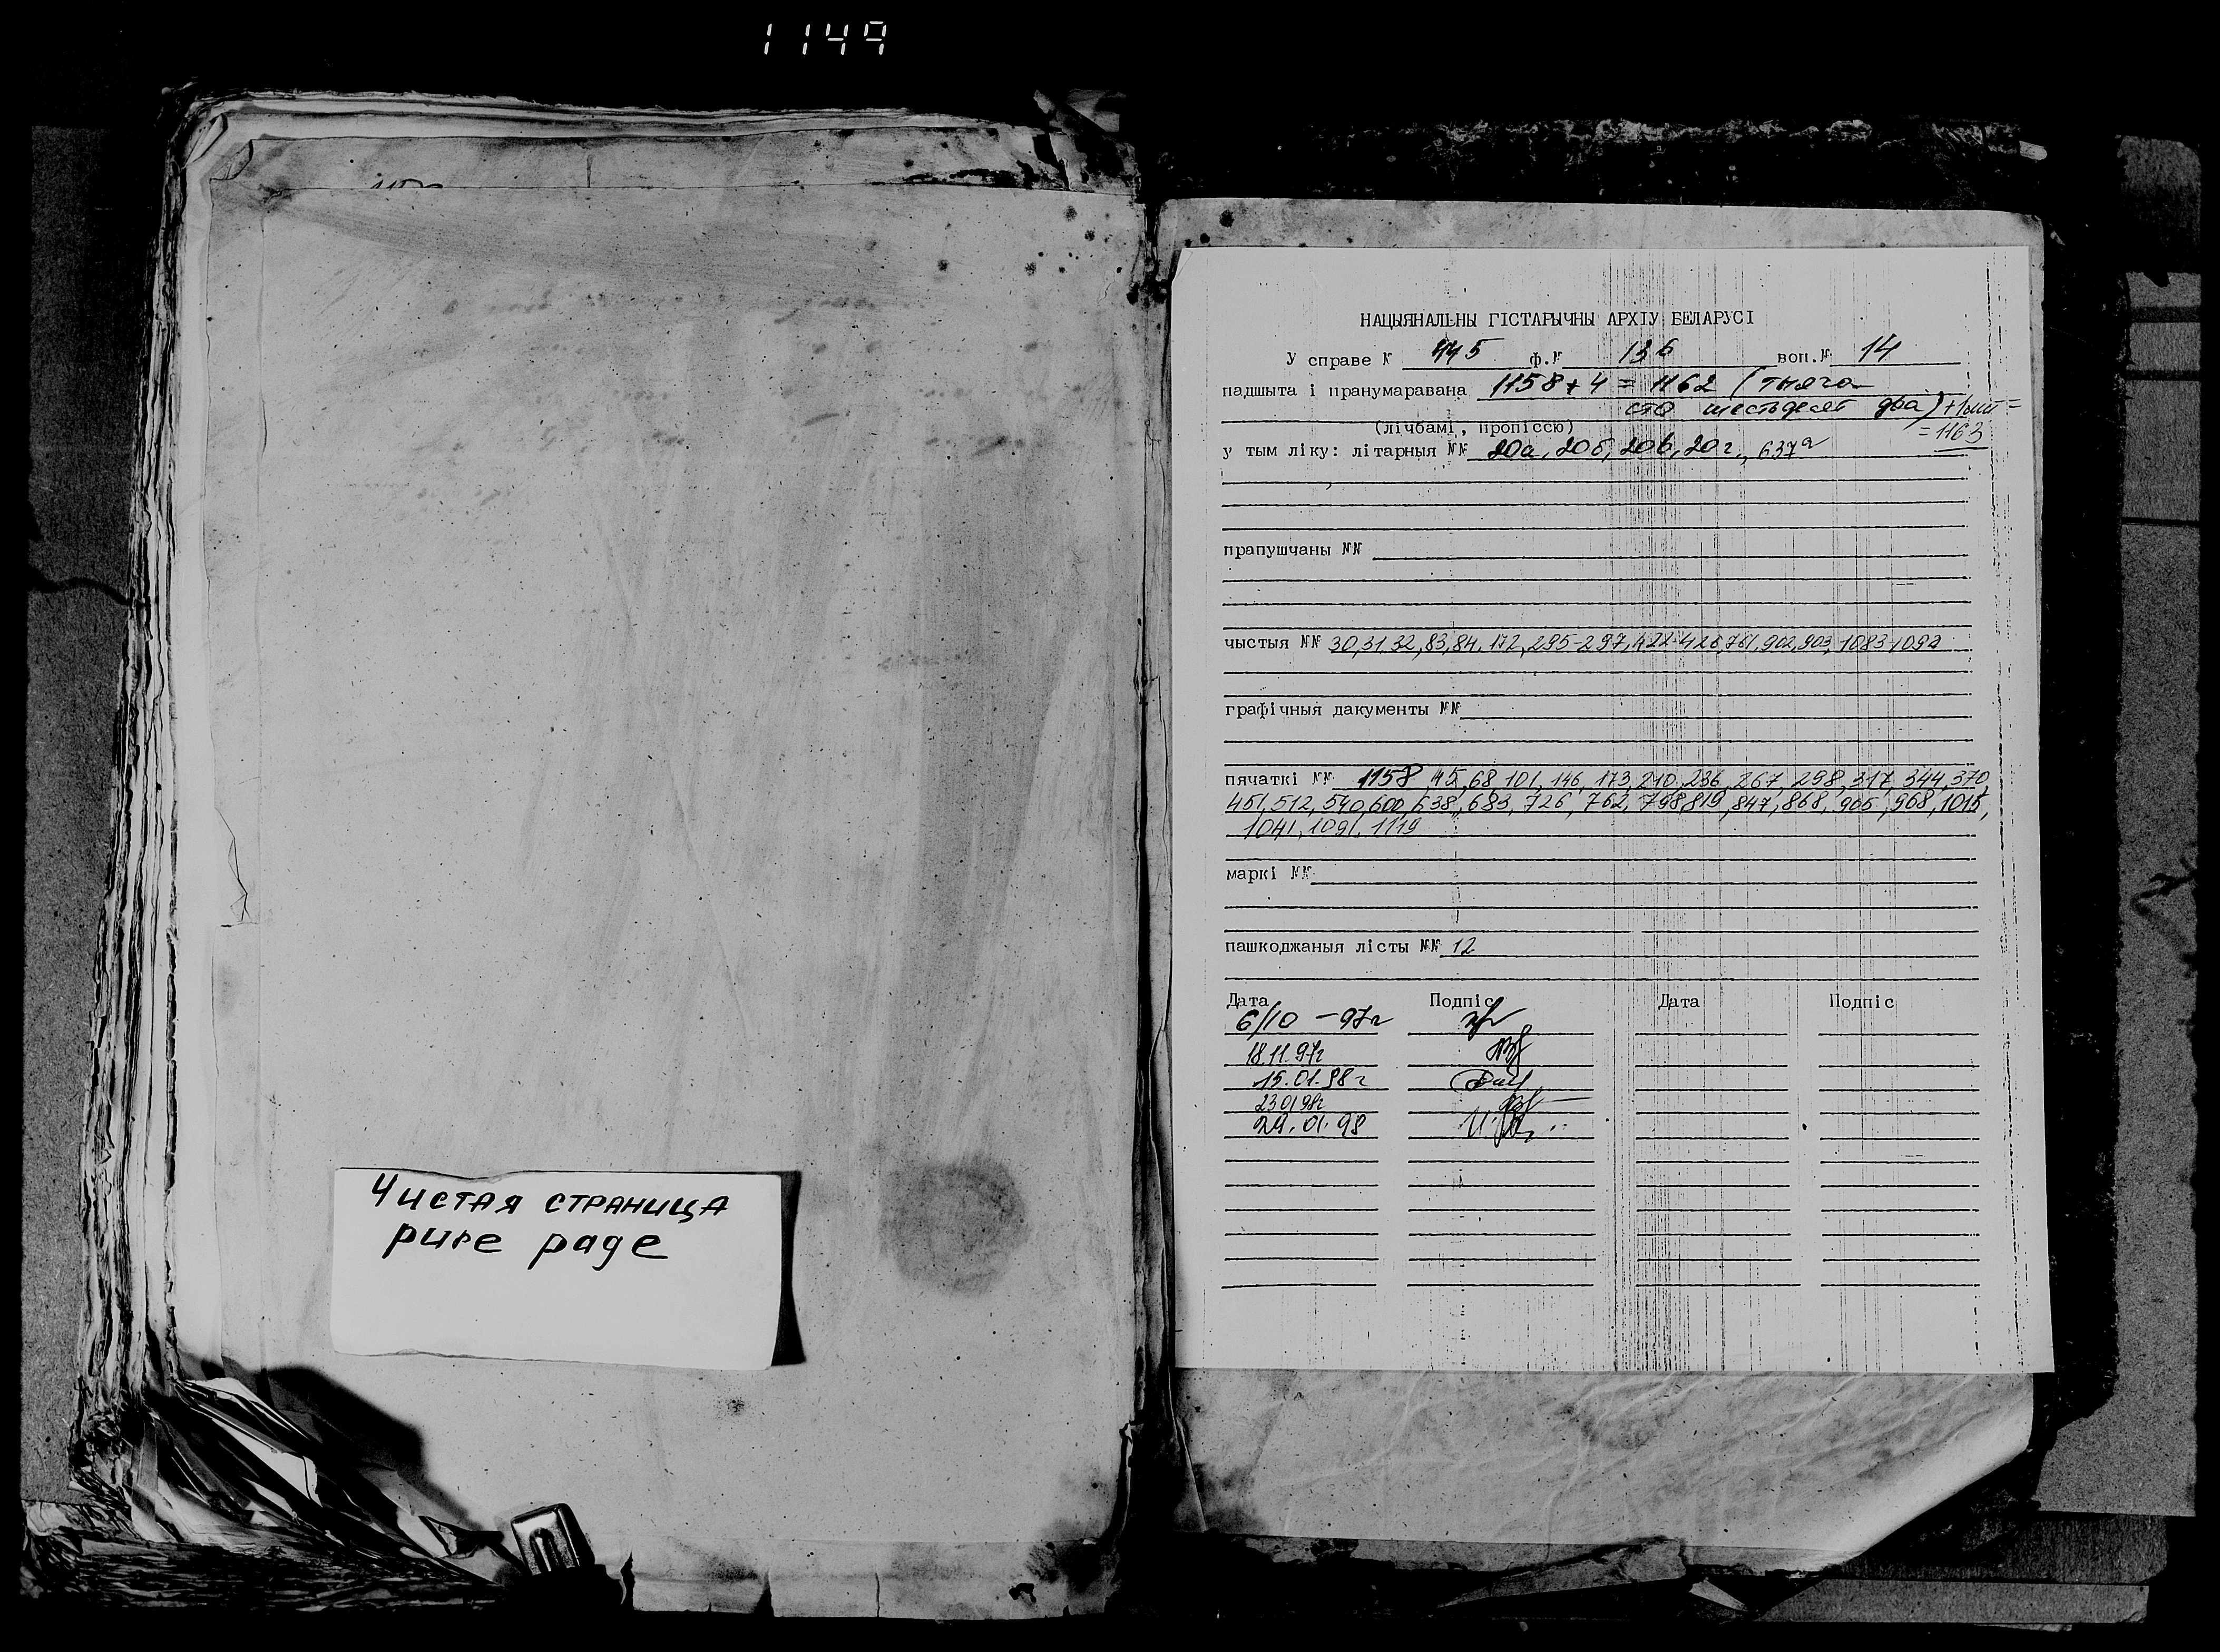 1149
НАЦЫЯНАЛЬНЫ ГІСТАРЫЧНЫ АРХІУ БЕЛАРУСІ
У справе № 445 ф.№ 136 воп.№ 14
падшыта і пранумаравана 1158+4 = 1162 (тысяча
сто шестьдесят два) +1лит =
(лічбамі, пропіссю) = 1163
у тым ліку: літарныя №№ 20а, 20б, 20в, 20г, 637а
прапушчаны №№
чыстыя №№ 30,31,32,83,84,172,295-297,422-426,761,902,903,1083-1092
графічныя дакументы №№
пячаткі №№ 1158, 45,68,101,146,173,210,236,267,298,317,344,370,
451,512,540,600,638,683,726,762,798,819,847,868,905,968,1015,
1041,1091,1119
маркі №№
пашкоджаныя лісты №№ 12
Дата Подпіс Дата Подпіс
6/10 -97г
18.11.97г
15.01.98г
23 01 98г
29.01.98
Чистая страница
pure page